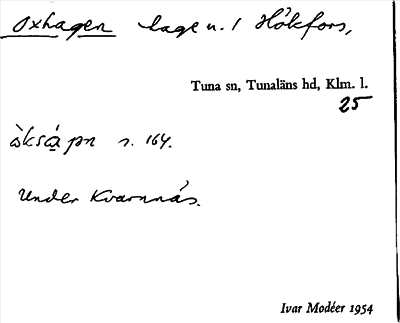 Oxhagen hage u. / Hökfors,
Tuna sn, Tunaläns hd, Klm. l.
25
s. 164.
Under Kvarnnäs.
Ivar Modéer 1954